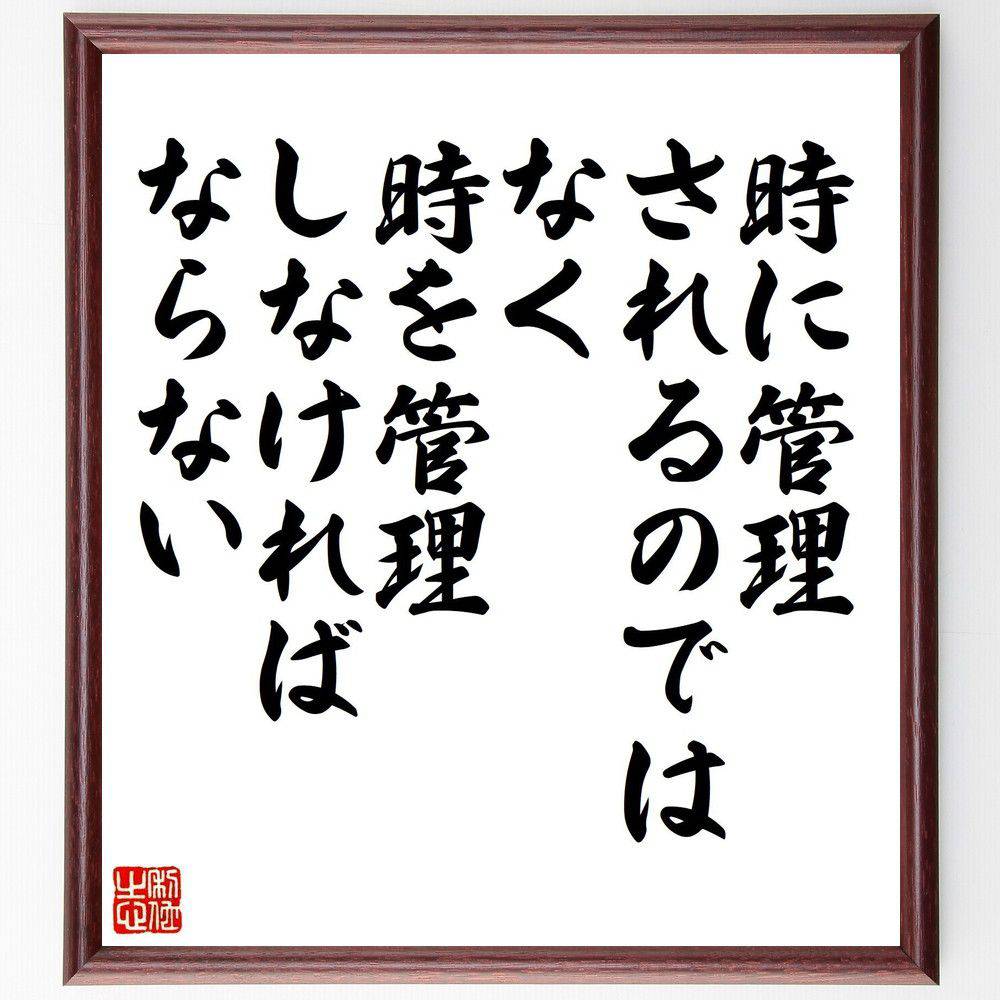 時に管理
されるのでは
なく
時を管理
しなければ
ならない